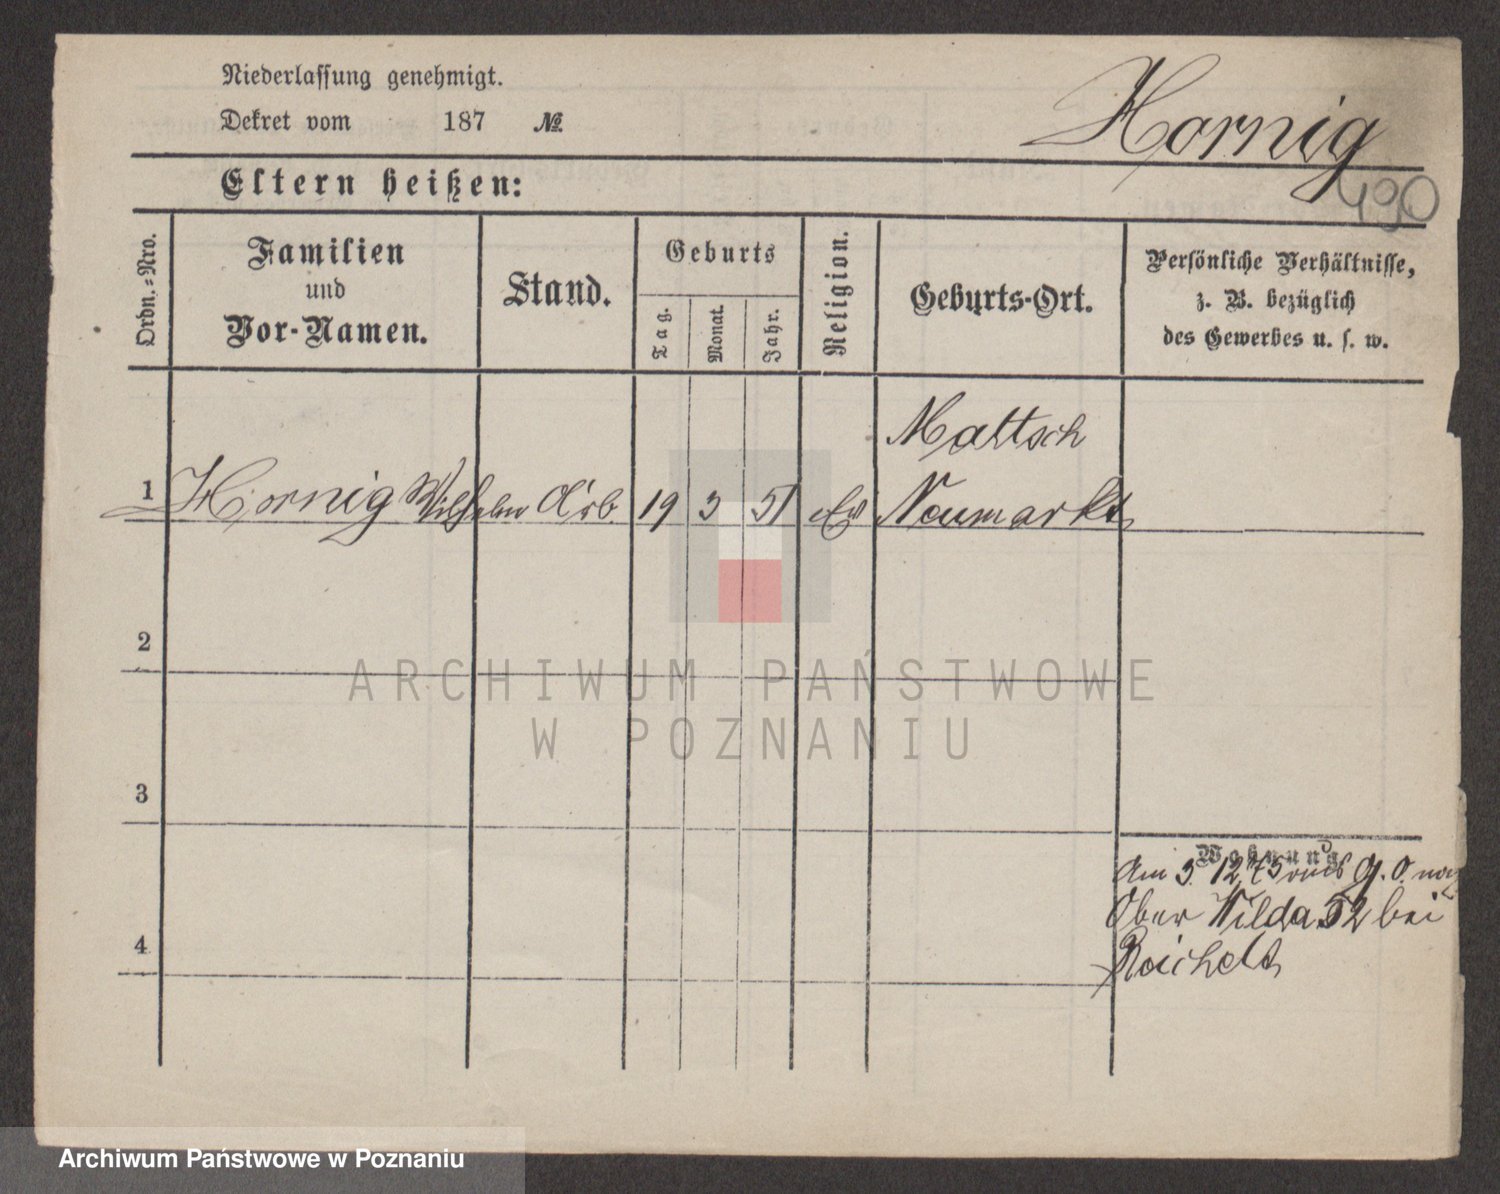 Niederlassung genehmigt.
Dekret vom 187 №
Hornig
490
Eltern heißen:
Ordn.=Nro.
Familien
und
Vor-Namen.
Stand.
Geburts
Tag.
Monat.
Jahr.
Religion.
Geburts-Ort.
Persönliche Verhältnisse,
z. B. bezüglich
des Gewerbes u. s. w.
Maltsch
1 Hornig Wilhelm Arb. 19 3 51 Ev Neumarkt
2
3
Wohnung
Am 3. 12. 75 G. O.
Ober Wilda 52 bei
4
Reichelt
ARCHIWUM PAŃSTWOWE
W POZNANIU
Archiwum Państwowe w Poznaniu